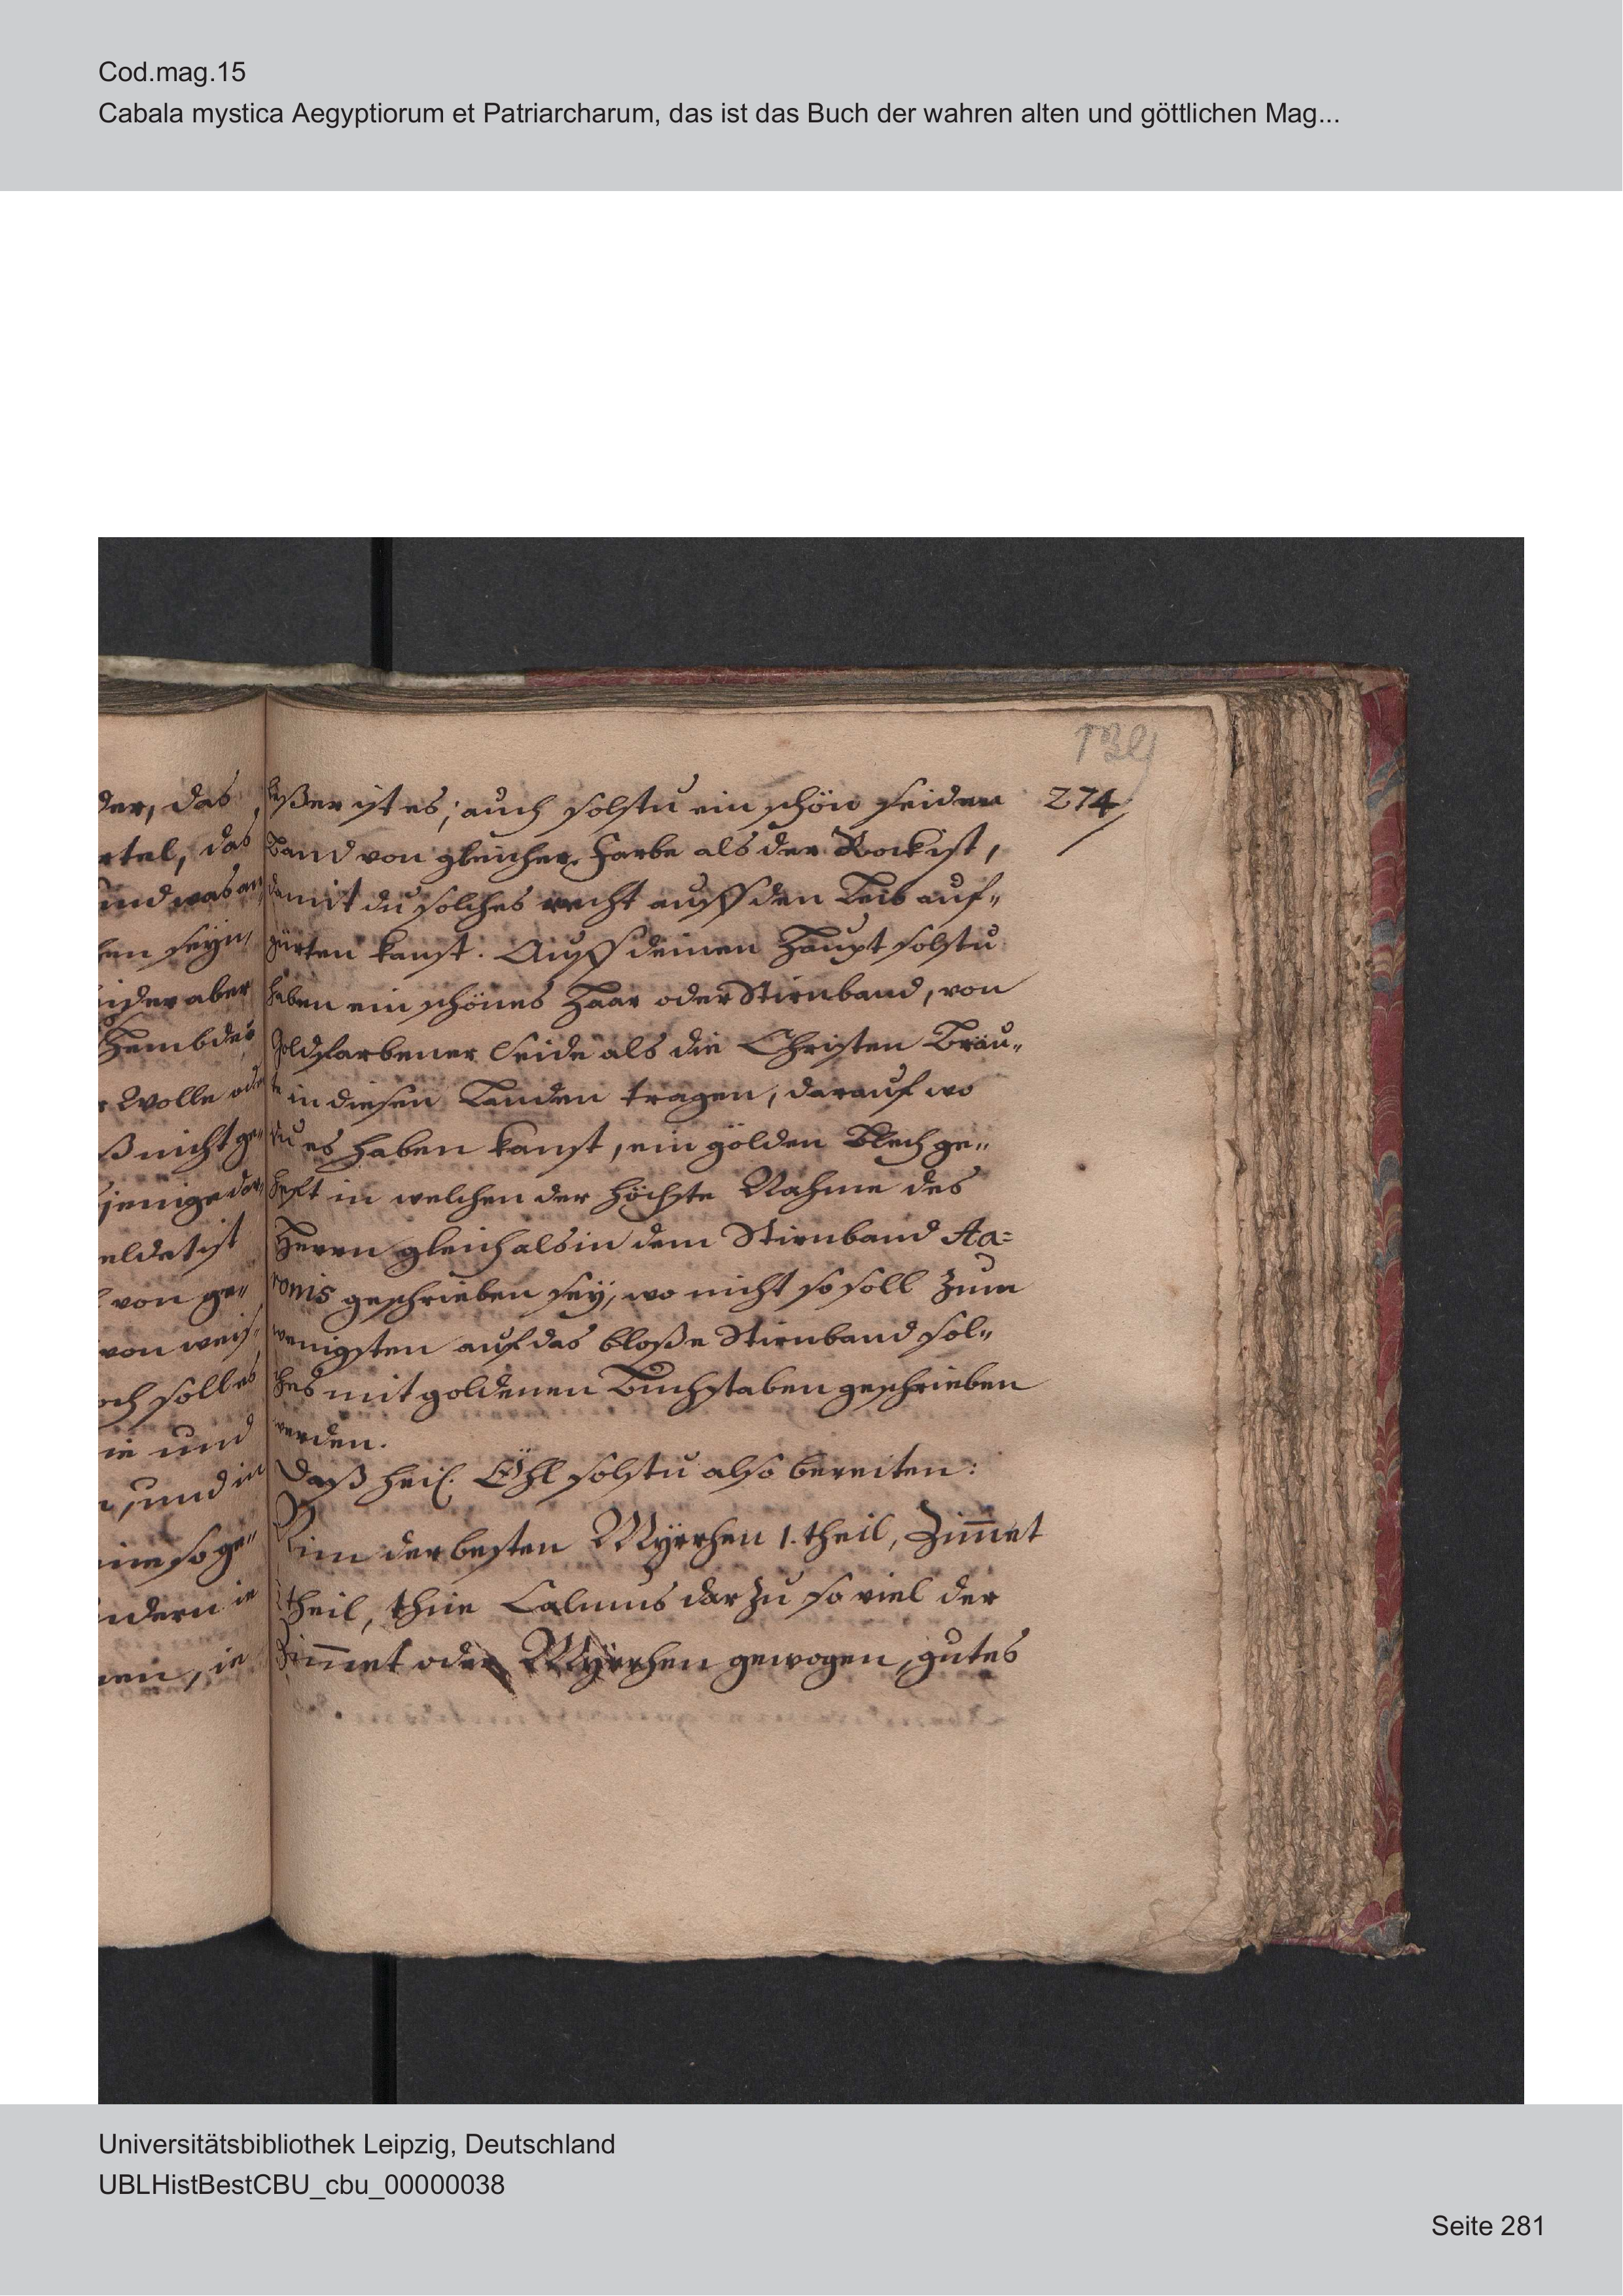 Cod.mag.15
Cabala mystica Aegyptiorum et Patriarcharum, das ist das Buch der wahren alten und göttlichen Mag...
139
274
der, das
rtel, das
und was an
hen seyn,
eider aber
Hembdes
r Wolle oder
ß nicht ge„
jenige dar„
eldet ist
l von ge„
von weis„
och soll es
ie und
n, und in
eine so ge„
ndern ie
nen, ie
beßer ist es; auch solstu ein schön seiden
Band von gleicher Farbe als der Rock ist,
damit du solches recht auff den Leib auf„
gürten kanst. Auff deinen Haupt solstu
haben ein schönes Haar oder Stirnband, von
Goldfarbener Seide als die Christen Bräu„
te in diesen Landen tragen, darauf wo
du es haben kanst, ein gölden Blech ge„
heft in welchen der höchste Nahme des
Herrn gleich als in dem Stirnband Aa=
ronis geschrieben sey, wo nicht so soll zum
wenigsten auf das bloße Stirnband sol„
ches mit goldenen Buchstaben geschrieben
werden.
Daß heil. Öhl solstu also bereiten:
Nim der besten Myrrhen 1. theil, Zim̄et
theil, Calmus darzu so viel der
Zim̄et oder Myrrhen gewogen, gutes
Universitätsbibliothek Leipzig, Deutschland
UBLHistBestCBU_cbu_00000038
Seite 281